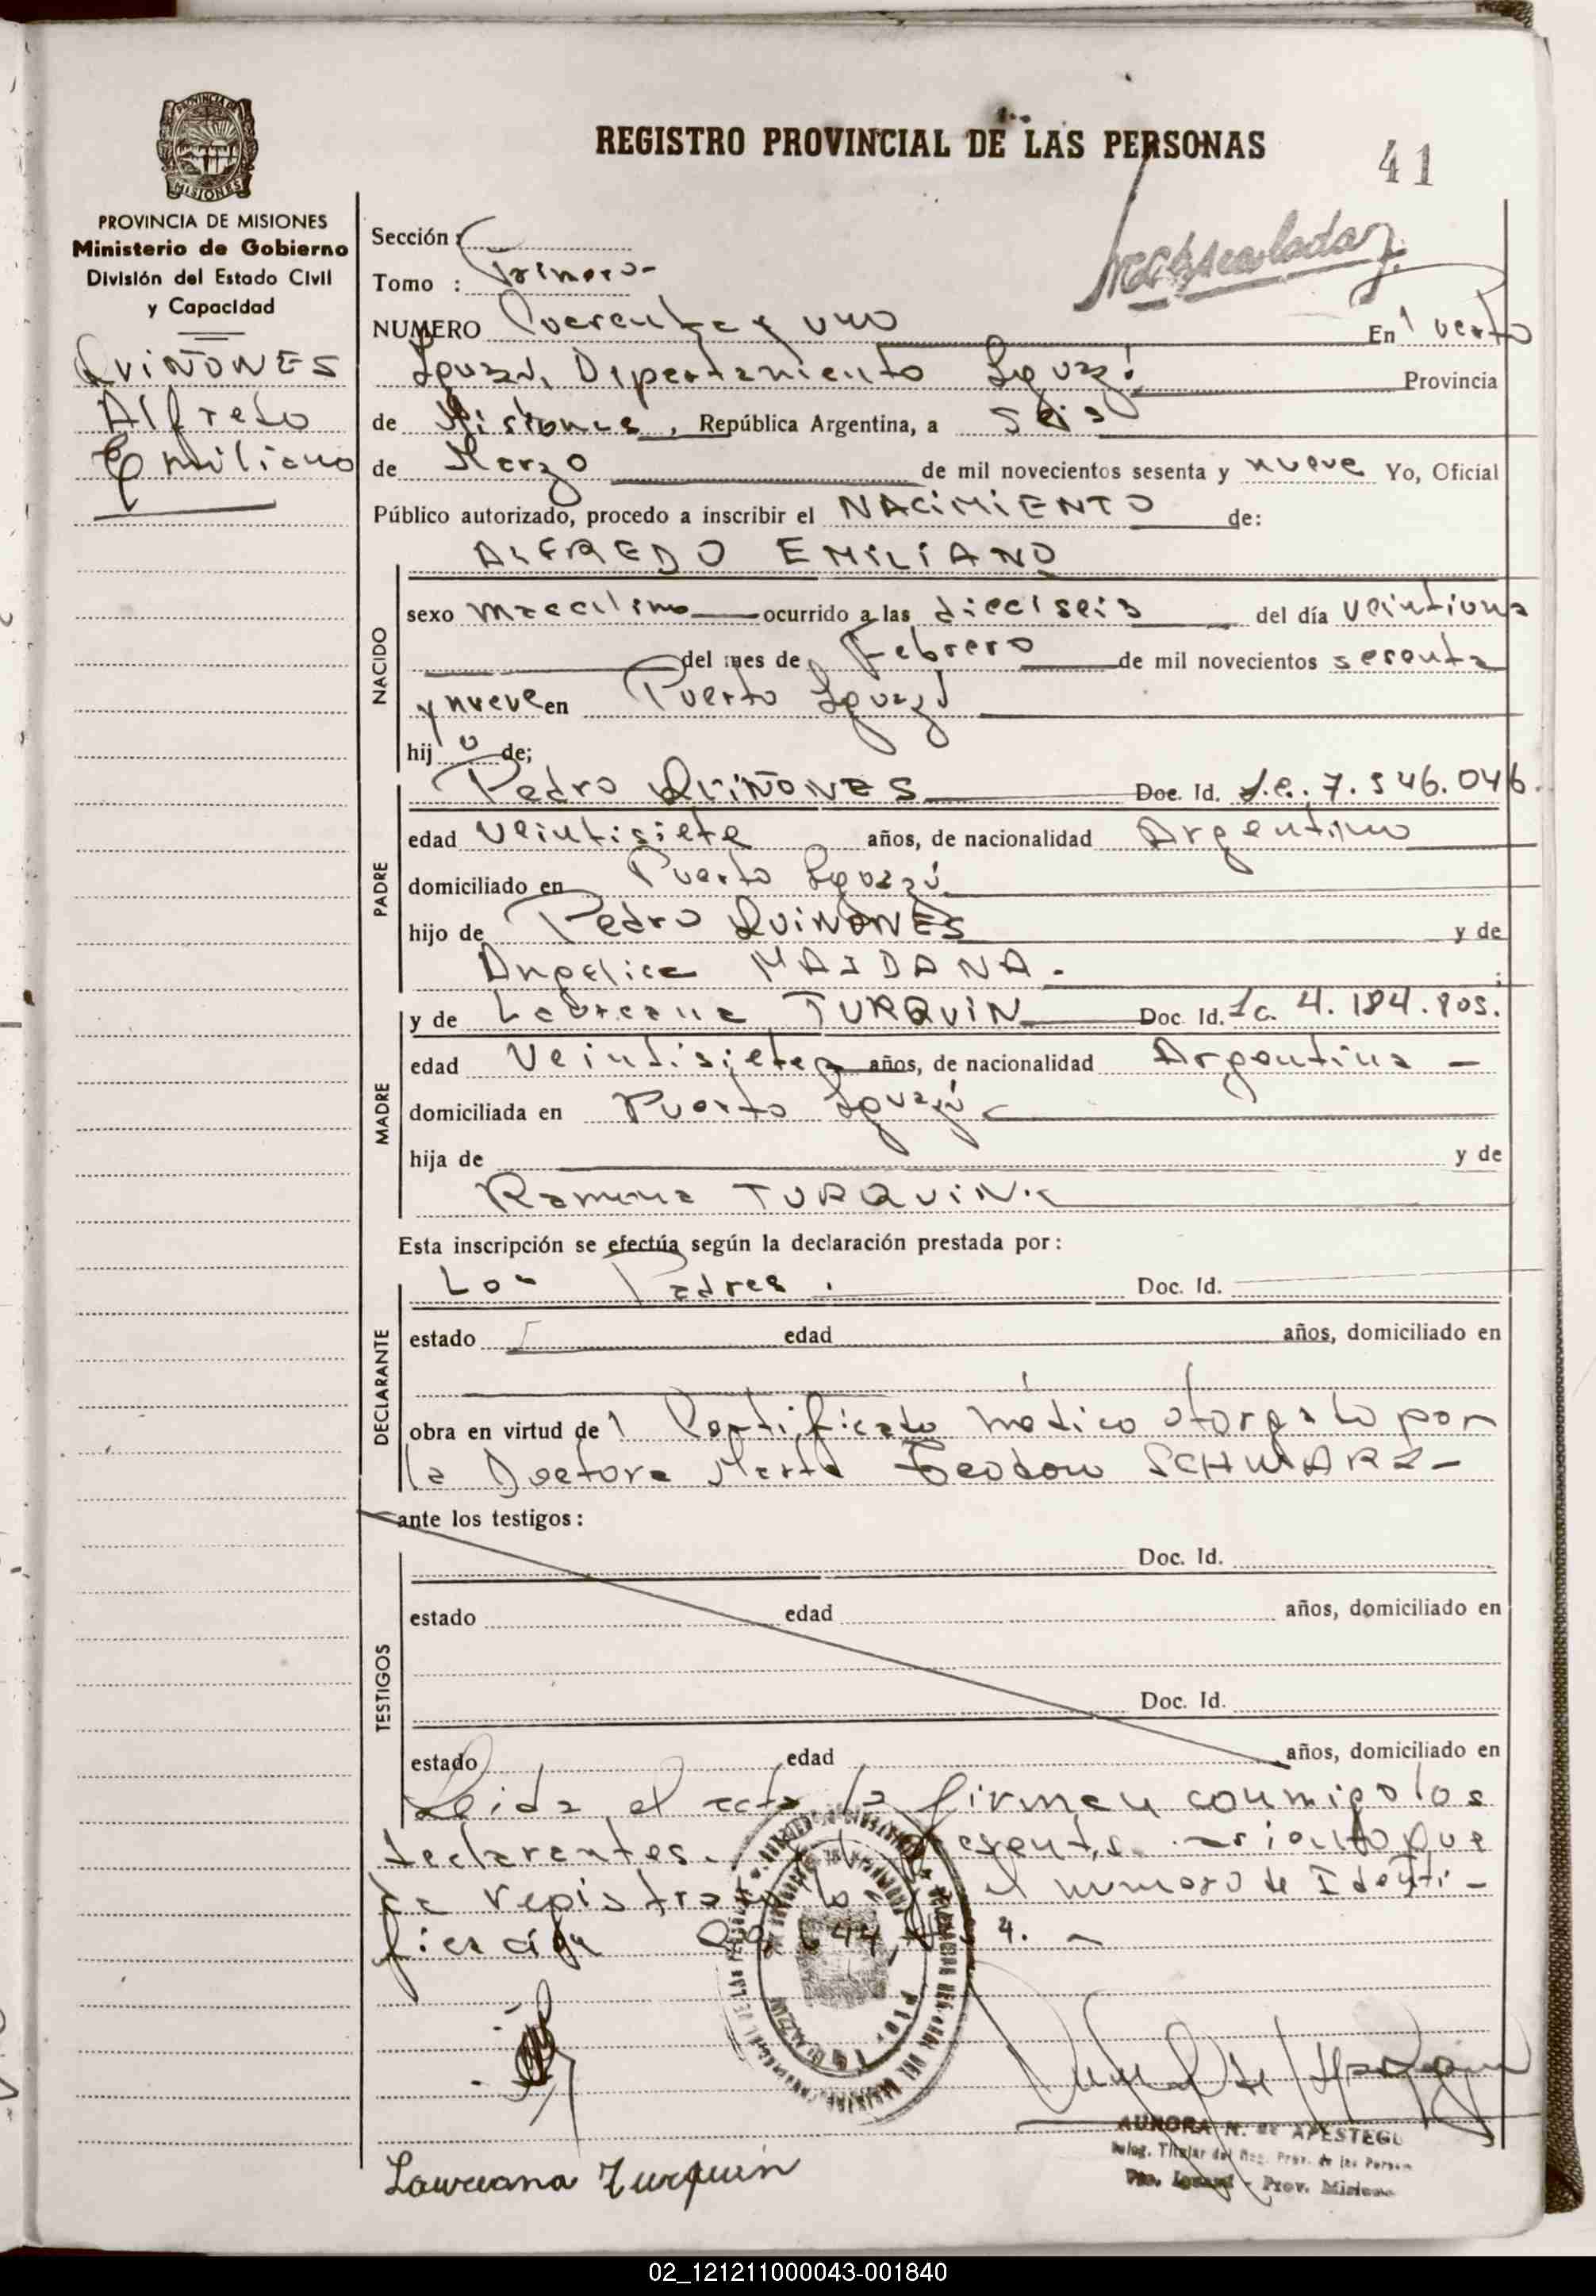 REGISTRO PROVINCIAL DE LAS PERSONAS
41
PROVINCIA DE MISIONES
PROVINCIA DE MISIONES
Ministerio de Gobierno
División del Estado Civil
y Capacidad
QUIÑONES
Alfredo
Emiliano
Sección:
Tomo : Primero-
NUMERO Cuarenta y uno En Puerto
Iguazú, Departamiento Iguazú Provincia
de Misiones, República Argentina, a Seis
de Marzo de mil novecientos sesenta y nueve Yo, Oficial
Público autorizado, procedo a inscribir el NACIMIENTO de:
NACIDO
ALFREDO EMILIANO
sexo masculino ocurrido a las dieciseis del día veintiuno
del mes de Febrero de mil novecientos sesenta
y nueve en Puerto Iguazú
hijo de;
PADRE
Pedro QUIÑONES Doc. Id. L.e. 7.546.046.
edad Veintisiete años, de nacionalidad Argentino
domiciliado en Puerto Iguazú
hijo de Pedro QUIÑONES y de
Angelica MAIDANA.
MADRE
y de Laureana TURQUIN Doc. Id. Lc. 4.184.805.
edad Veintisiete años, de nacionalidad Argentina -
domiciliada en Puerto Iguazú
hija de y de
Ramona TURQUIN.
Esta inscripción se efectúa según la declaración prestada por:
DECLARANTE
Los Padres. Doc. Id.
estado edad años, domiciliado en
obra en virtud de Certificado médico otorgado por
la Doctora Marta Teodora SCHWARZ-
ante los testigos:
TESTIGOS
Doc. Id.
estado edad años, domiciliado en
Doc. Id.
estado edad años, domiciliado en
Leida el acta la firman conmigo los
declarantes. presente asiento que
se registra el numero de Identi-
ficación 4. -
Laureana Turquin
AURORA N. de APESTEGU
Deleg. Titular del Reg. Prov. de las Person
Pto. Iguazú - Prov. Misiones
02_121211000043-001840